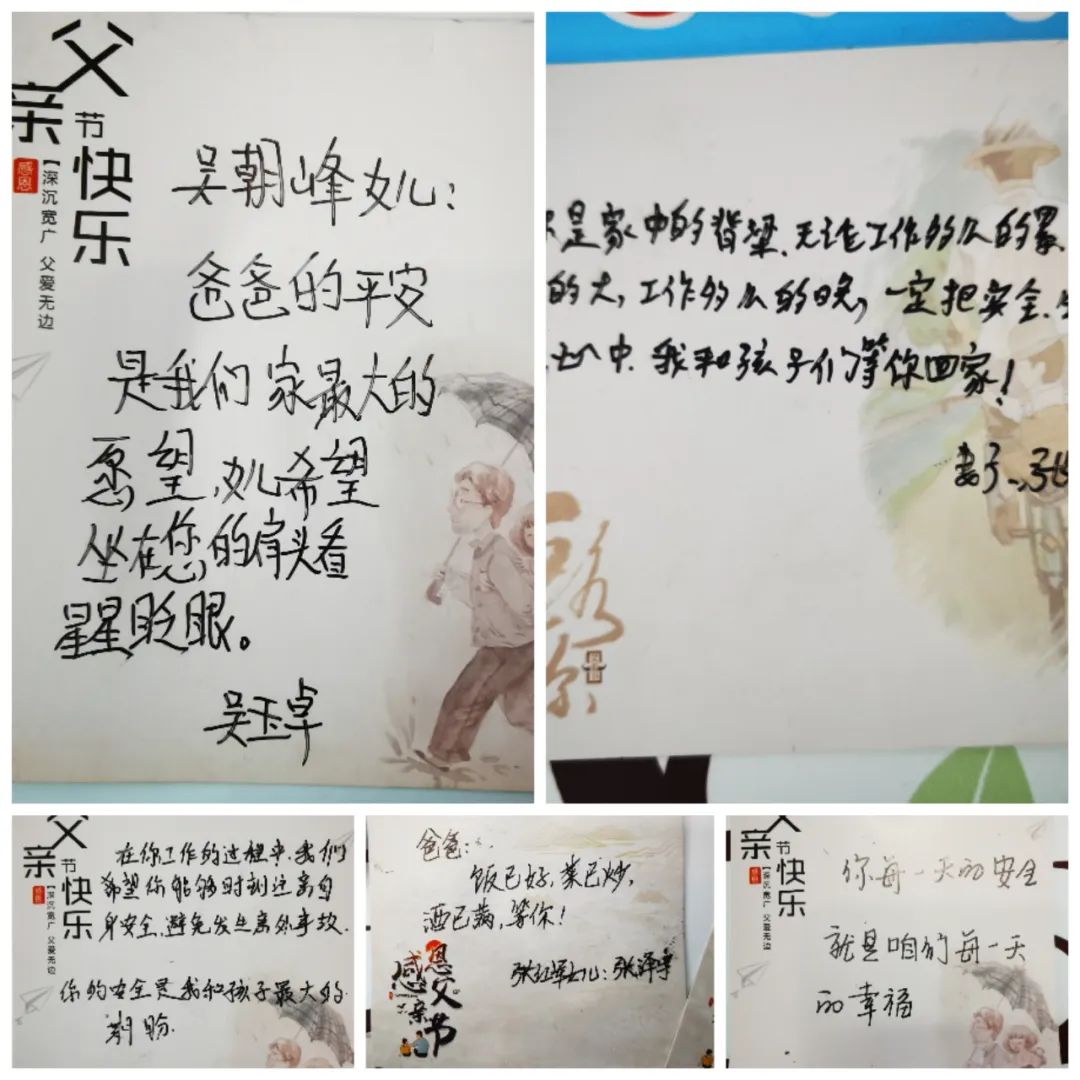 父亲节快乐
感恩
【深沉宽广 父爱无边
吴朝峰女儿：
爸爸的平安
是我们家最大的
愿望，女儿希望
坐在您的肩头看
星星眨眼。
吴玉卓
是家中的脊梁.无论工作的么的累.
的大，工作的么的晚，一定把安全.
中.我和孩子们等你回家！
妻子
父亲节快乐
感恩
【深沉宽广 父爱无边
在你工作的过程中.我们
希望你能够时刻注意自
身安全.避免发生意外事故.
你的安全是我和孩子最大的
期盼.
爸爸：
饭已好，菜已炒，
酒已满，等你！
张红军女儿：张泽宇
感恩父亲节
父亲节快乐
感恩
【深沉宽广 父爱无边
你每一天的安全
就是咱们每一天
的幸福